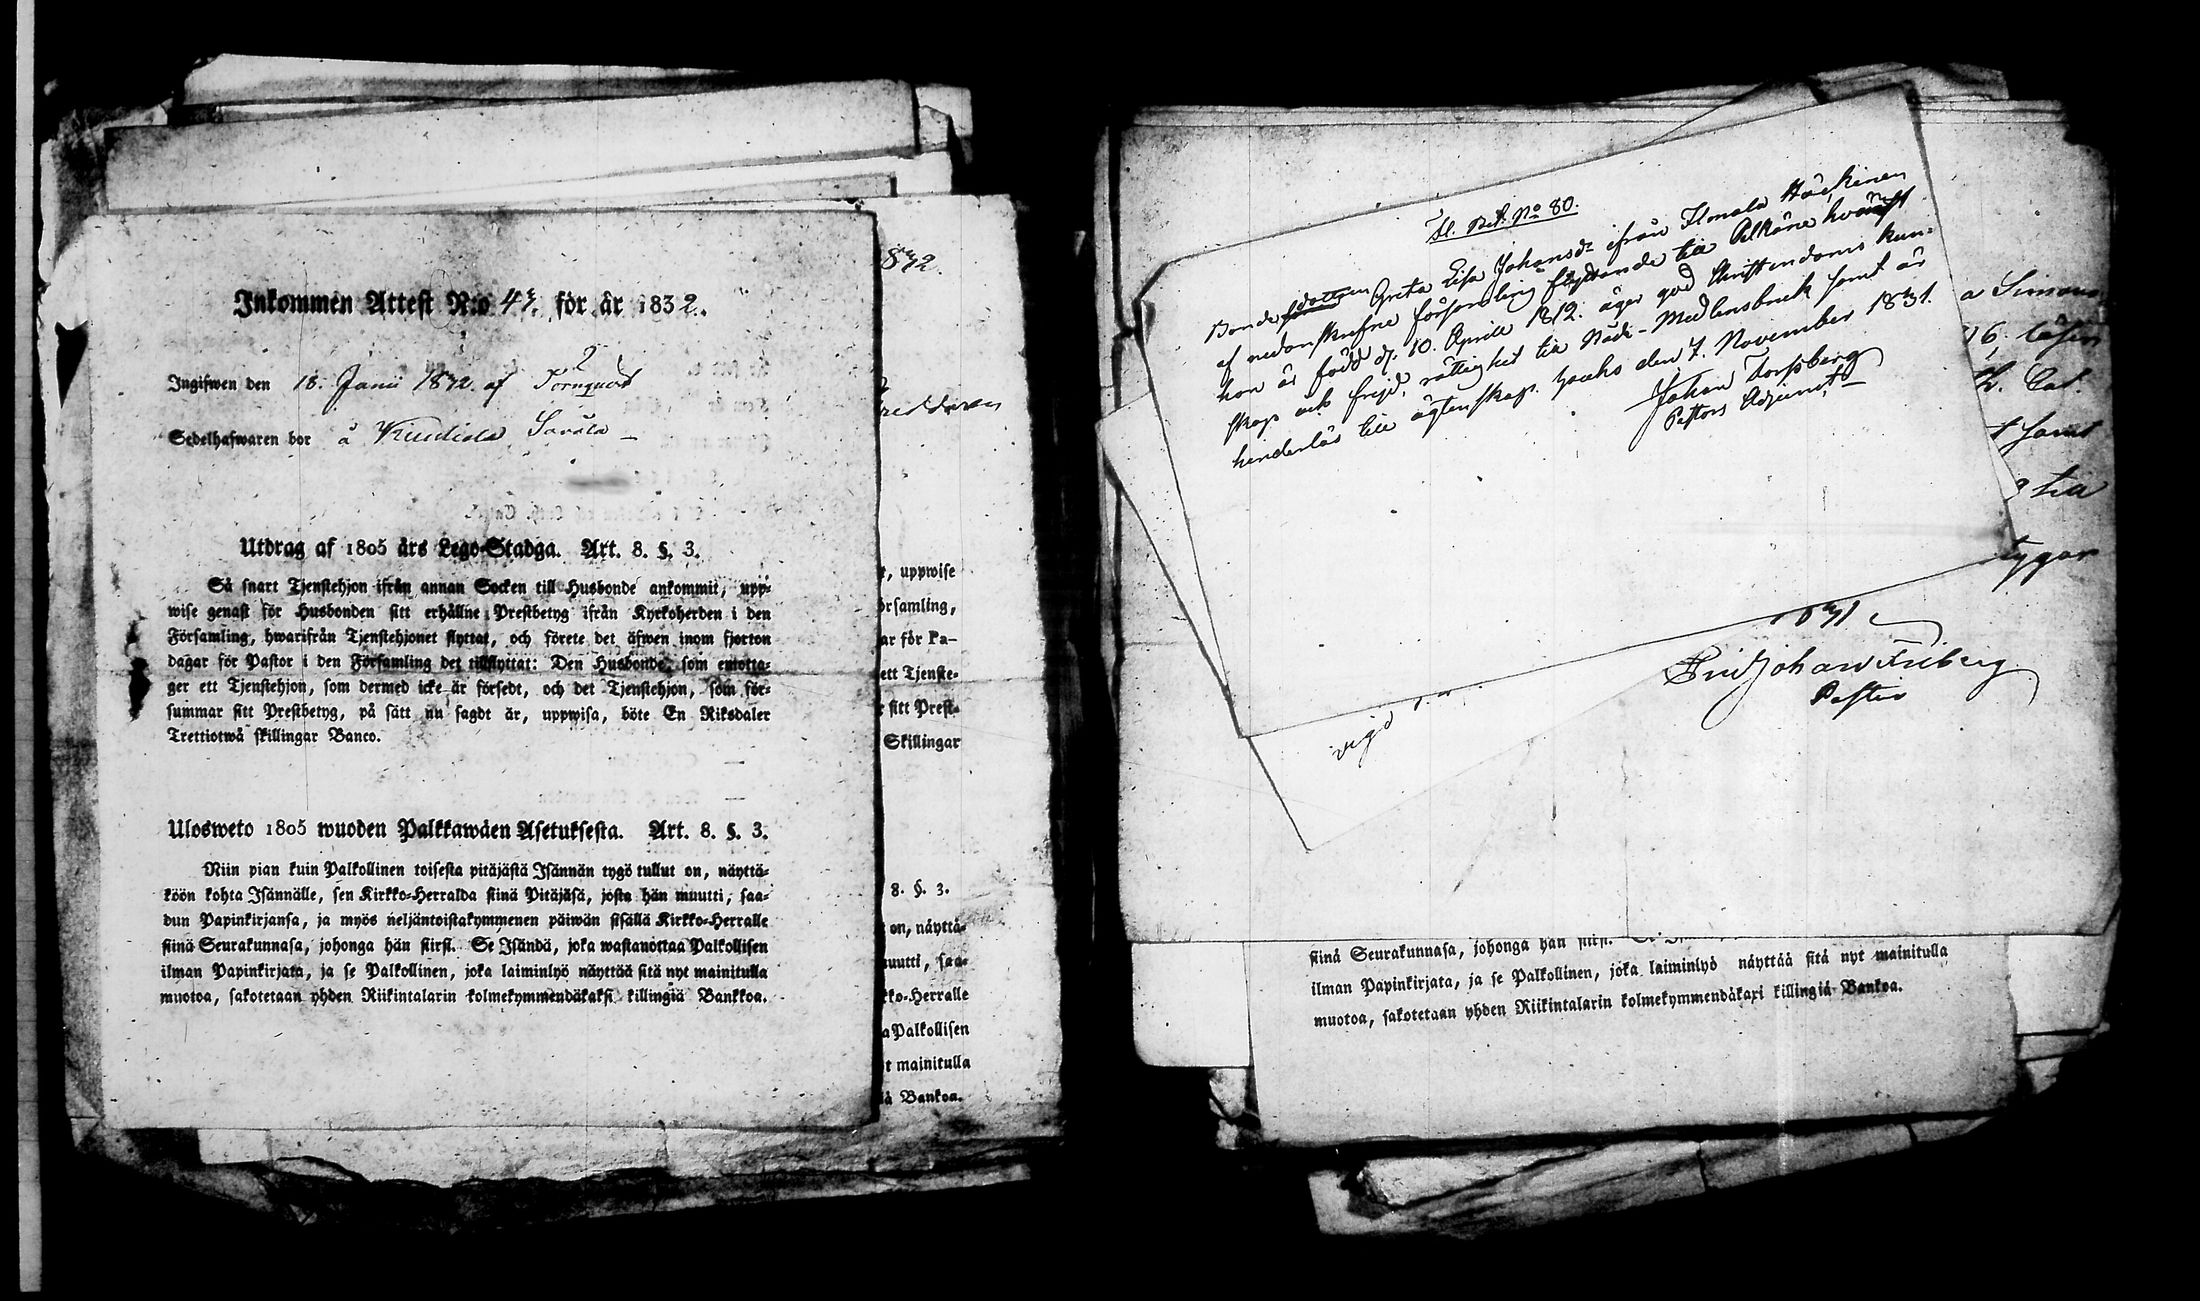 Inkommen Attest N:o 47. för år 1832.
Ingifwen den 18. Junii 1832. af Törnqvist
2
Sedelhafwaren bor å Kuuliala Savola
Utdrag af 1805 års Lego-Stadga. Art. 8. §. 3.
Så snart Tjenstehjon ifrån annan Socken till Husbonde ankommit, upp-
wise genast för Husbonden sitt erhållne Prestbetyg ifrån Kyrkoherden i den
Församling, hwarifrån Tjenstehjonet flyttat, och förete det äfwen inom fjorton
dagar för Pastor i den Församling det tillflyttat: Den Husbonde, som emotta-
ger ett Tjenstehjon, som dermed icke är försedt, och det Tjenstehjon, som för-
summar sitt Prestbetyg, på sätt nu sagdt är, uppwisa, böte En Riksdaler
Trettiotwå skillingar Banco.
Ulosweto 1805 wuoden Palkkawäen Asetuksesta. Art. 8. §. 3.
Niin pian kuin Palkollinen toisesta pitäjästä Isännän tygö tullut on, näyttä-
köön kohta Isännälle, sen Kirkko-Herralda siinä Pitäjäsä, josta hän muutti, saa-
dun Papinkirjansa, ja myös neljäntoistakymmenen päiwän sisällä Kirkko-Herralle
siinä Seurakunnasa, johonga hän siirsi. Se Isändä, joka wastanottaa Palkollisen
ilman Papinkirjata, ja se Palkollinen, joka laiminlyö näyttää sitä nyt mainitulla
muotoa, sakotetaan yhden Riikintalarin kolmekymmendäkaksi killingiä Bankkoa.
832.
, uppwise
örsamling,
ar för Pa-
ett Tjenste-
r sitt Prest-
Skillingar
8. §. 3.
on, näyttä-
uutti, saa-
ko-Herralle
a Palkollisen
t mainitulla
iä Bankoa.
Fl. Bet. No 80.
Bonde dottren Greta Lisa Johansdr ifrån Ilmola
af nedanskrefne församling flyttande till Pelkäne
hon är född d. 10. Aprill 1812. äger god Christendoms kun-
skap och frejd, rättighet till Nåde-Medlens bruk samt är
hinderlös till ägtenskap. den 7. November 1831.
Johan Forssberg
Pastors Adjunct
a Simons
16. läser
Cat.
samt
till
tygar
1831
vigd
Johan Friberg
Pastor
siinä Seurakunnasa, johonga hän siirsi.
ilman Papinkirjata, ja se Palkollinen, joka laiminlyö näyttää sitä nyt mainitulla
muotoa, sakotetaan yhden Riikintalarin kolmekymmendäkaxi killingiä Bankoa.